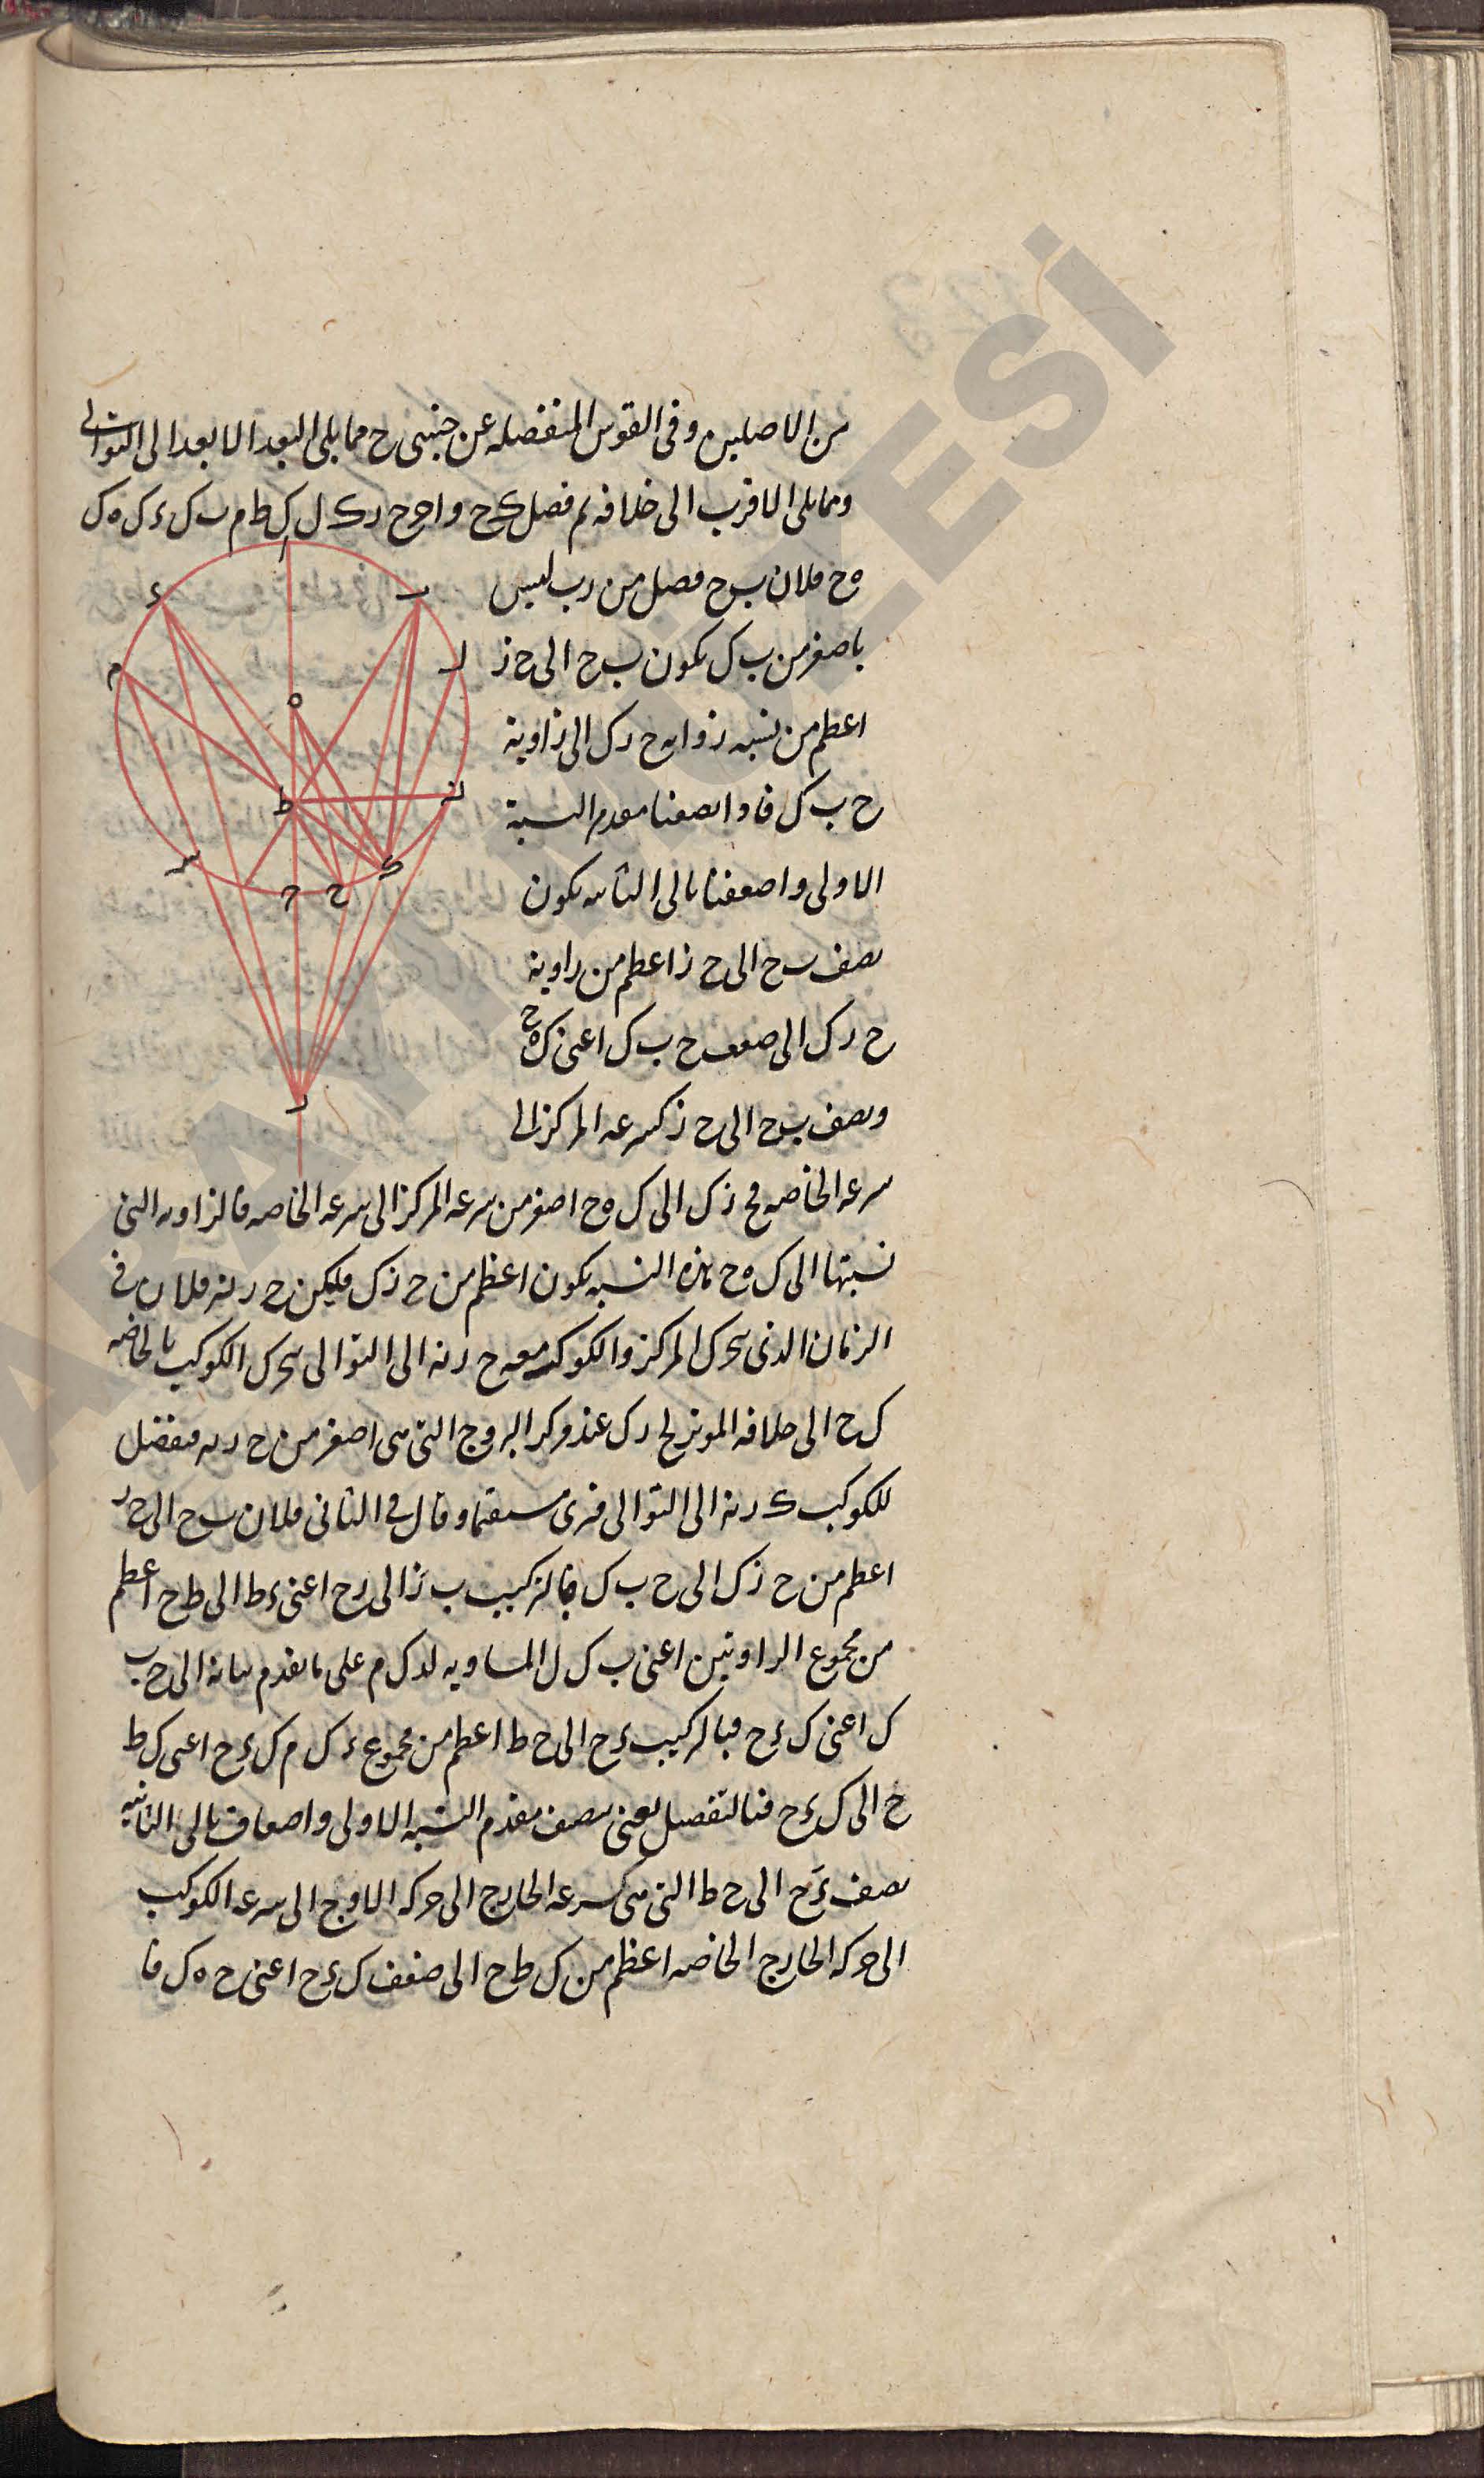 من الاصلين وفى القوس المنفصله عن جنبتى ح مما يلى البعد الابعد الى التوالى
ومما يلى الاقرب الى خلافه ثم فصل ک ح واحرح رک ل ک ط م ب ک ء ک ه ک
ه ح فلان ب ح فصل من رب ليس
باصغر من ب ک يكون ب ح الى ح ز
اعظم من نسبه زوايه ح رک الى زاوية
ح ب ک فاذا نصفنا مقدم النسبة
الاولى واضعفنا تالى الثانيه يكون
نصف ب ح الى ح ز اعظم من زاوية
ح رک الى ضعف ح ب ک اعنى ک ه ح
ونصف ب ح الى ح ز كسرعه المركز الى
سرعه الخاصه فح زک الى ک ه ح اصغر من سرعه المركز الى سرعه الخاصه فالزاويه التى
نسبتها الى ک ه ح هذه النسبه يكون اعظم من ح زک فليكن ح رنه فلان فى
الزمان الذى يتحرك المركز والكوكب معه ح رنه الى التوالى يتحرك الكوكب بالخاصه
ک ح الى خلافه الموتر لح رک عند مركز البروج التى هى اصغر من ح رنه فيفضل
للكوكب ک رنه الى التوالى فيرى مستقيما وقال فى الثانى فلان ب ح الى ح ر
اعظم من ح زک الى ح ب ک فبالتركيب ب ز الى رح اعنى ء ط الى ط ح اعظم
من مجموع الزاويتين اعنى ب ک ل المساويه لء ک م على ما تقدم بيانه الى ح ب
ک اعنى ک ء ح فبالتركيب ء ح الى ح ط اعظم من مجموع ء ک م ک ء ح اعنى ک ط
ح الى ک ء ح فبالتفصيل يعنى بنصف مقدم النسبه الاولى واضعاف تالى الثانيه
نصف ء ح الى ح ط التى هى كسرعه الخارج الى حركه الاوج الى سرعه الكوكب
الى حركه الخارج الخاصه اعظم من ک ط ح الى ضعف ک ء ح اعنى ح ه ک فا
ا
ء
ب
م
ل
ه
ط
نه
س
ک
ح
ح
ر
SARAYI MÜZESİ